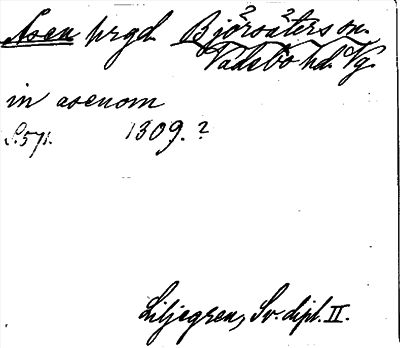 Åsen hrgd. Björsäters sn.
Vadsbo hd. Vg.
in asenom
S. 571. 1309.?
Liljegren, Sv. dipl. II.